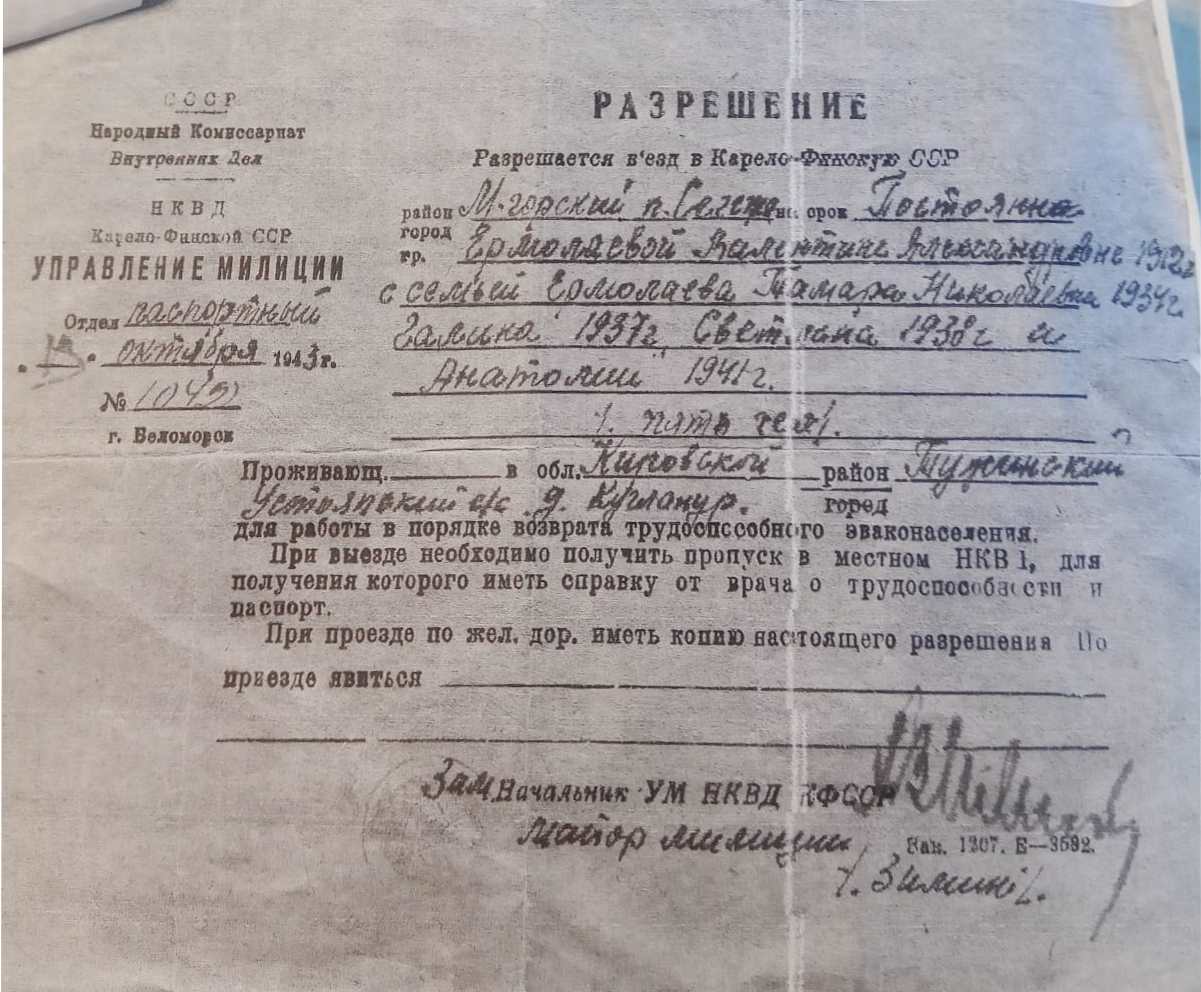 СССР
Народный Комиссариат
Внутренних Дел
НКВД
Карело-Финской ССР
УПРАВЛЕНИЕ МИЛИЦИИ
Отдел паспортный
октября 1943 г.
№
г. Беломорск
РАЗРЕШЕНИЕ
Разрешается в'езд в Карело-Финскую ССР
район М-горский п. Сегежа на срок Постоянно
город
гр. Ермолаевой Валентине Александровне 1912г
с семьей Ермолаева Тамара Николаевна 1934г.
Галина 1937г Светлана 1938г и
Анатолий 1941г.
/. пять чел/.
Проживающ. в обл. Кировской район Тужинский
город
Устояпский с/с д. Кугланур.
для работы в порядке возврата трудоспособного эваконаселения.
При выезде необходимо получить пропуск в местном НКВД, для
получения которого иметь справку от врача о трудоспособности и
паспорт.
При проезде по жел. дор. иметь копию настоящего разрешения По
приезде явиться
Зам. Начальник УМ НКВД КФССР
майор милиции
Зак. 1307. Е—3592.
/. Зимин/.